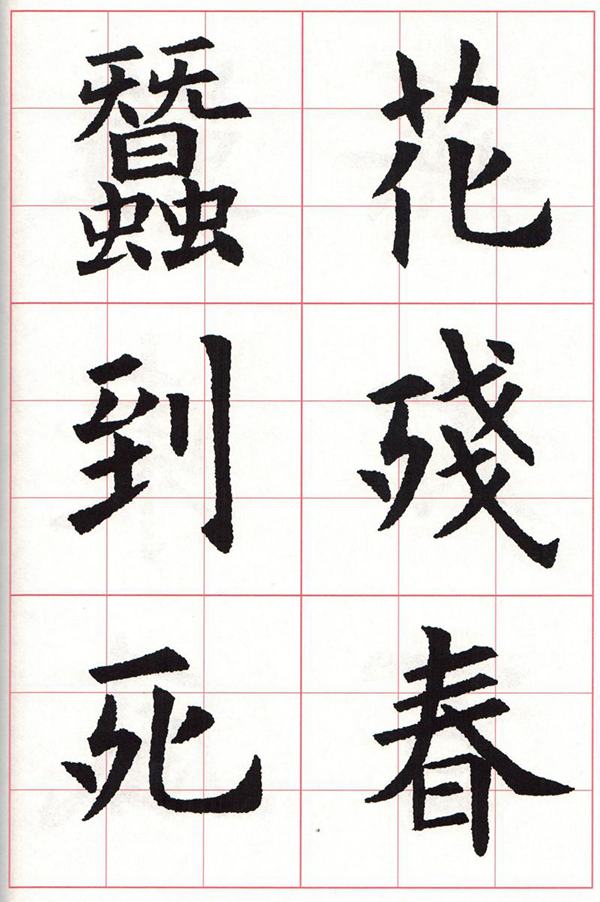 花殘春
蠶到死